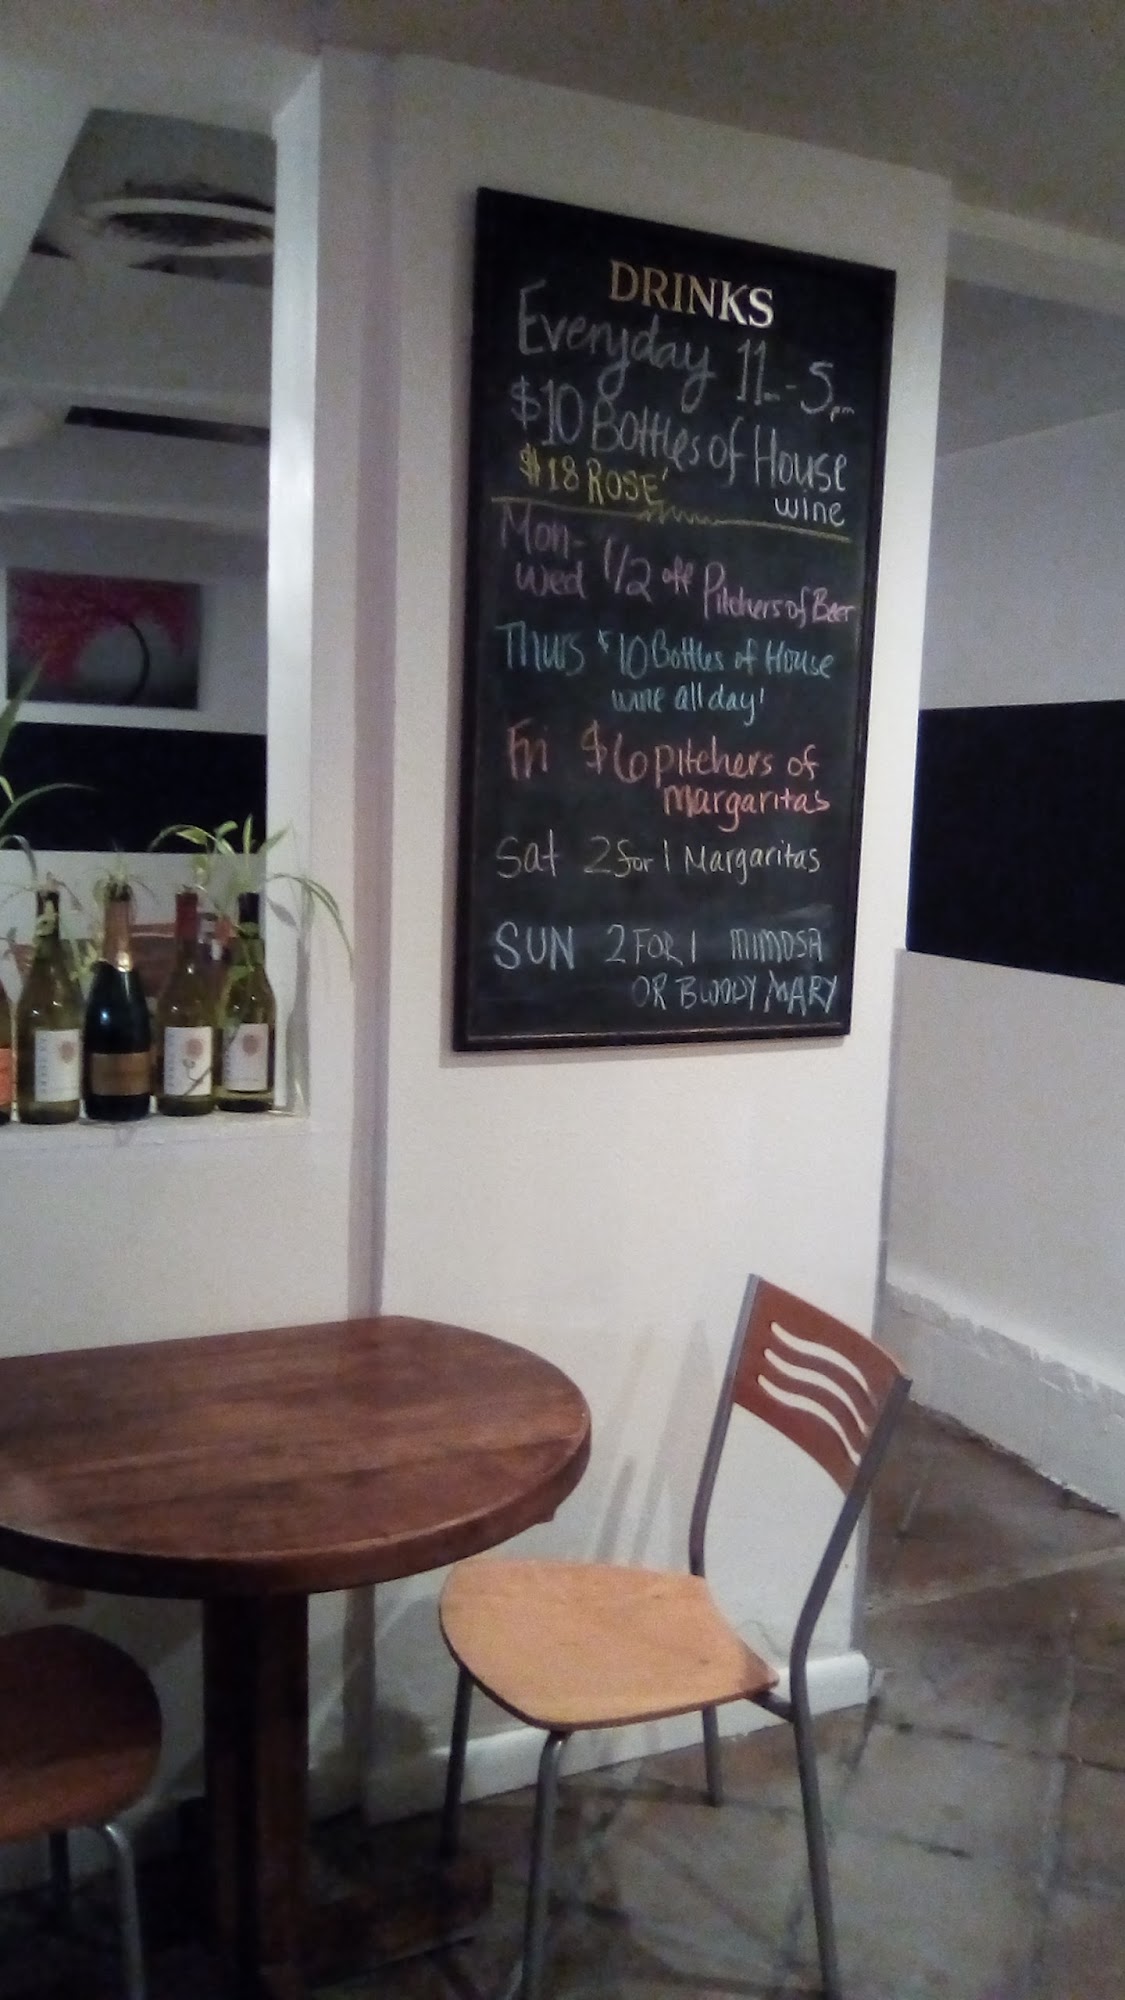 DRINKS
Everyday 11am-5pm
$10 Bottles of House
wine
$18 ROSE'
Mon-
Wed 1/2 off Pitchers of Beer
Thurs $10 Bottles of House
wine all day!
Fri $6 pitchers of
margaritas
Sat 2 for 1 Margaritas
SUN 2 FOR 1 MIMOSA
OR BLOODY MARY